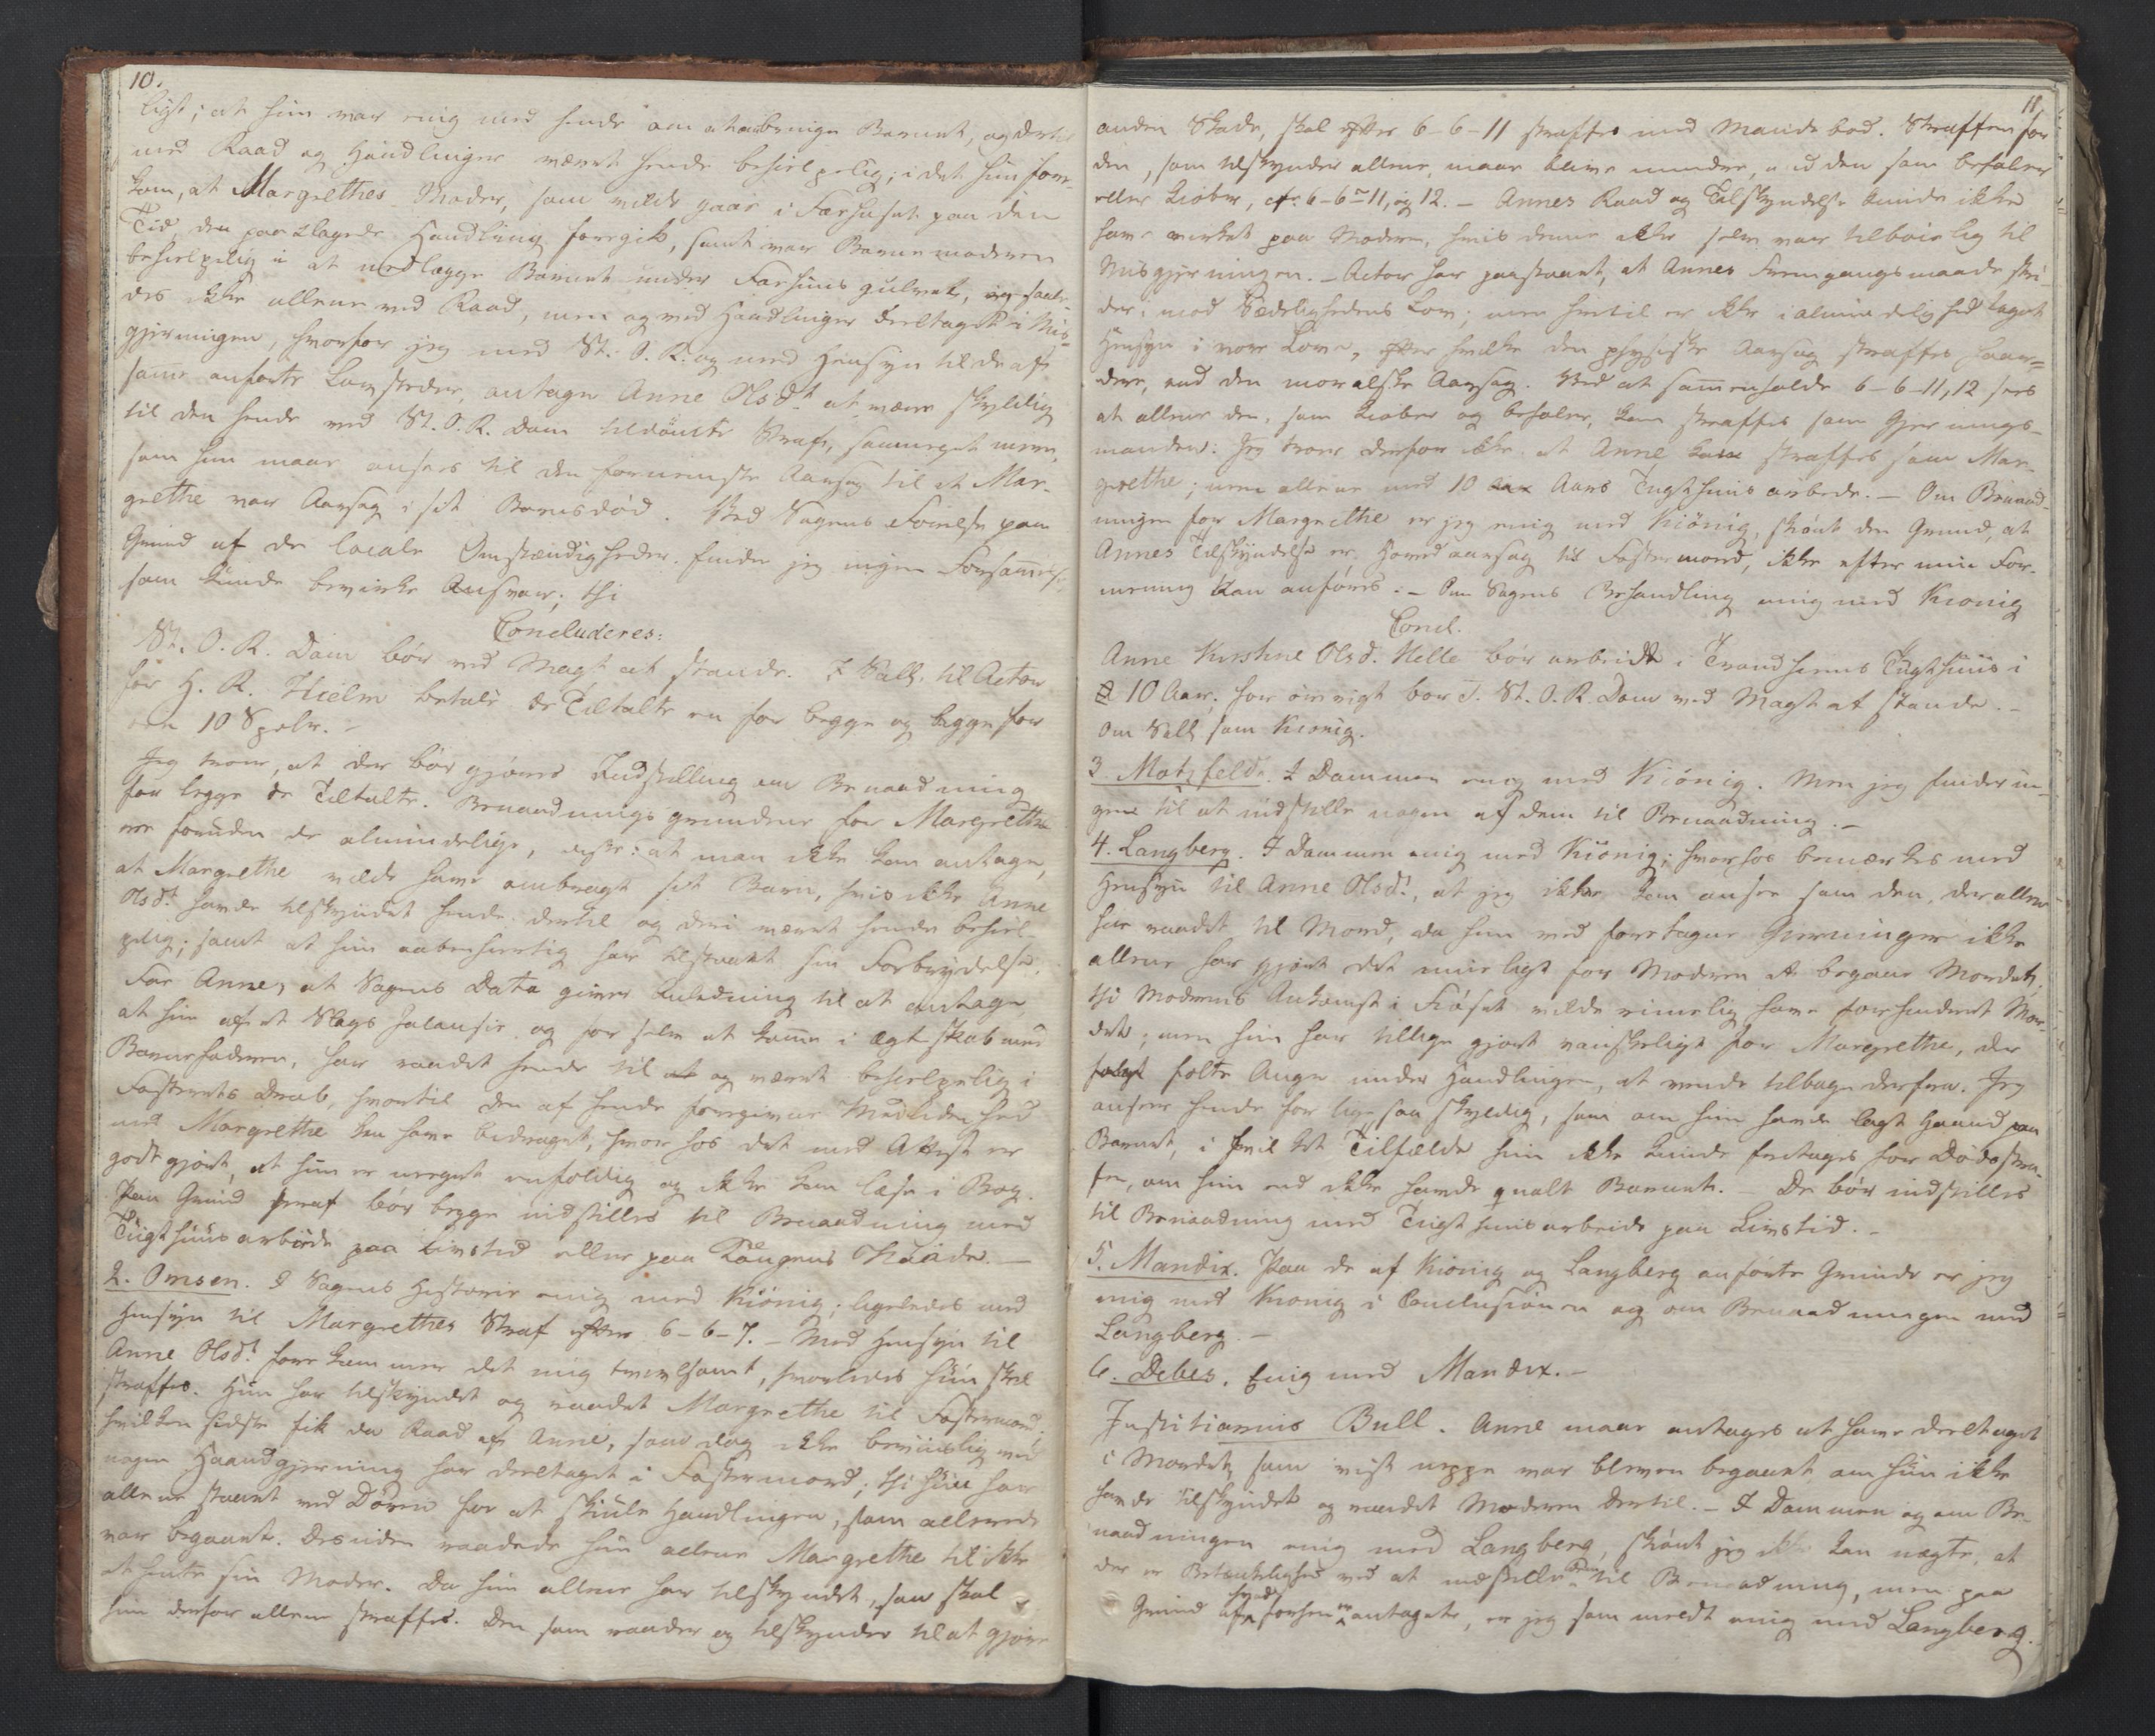 10.
ligt; at hun var enig med hende om at ombringe Barnet, og dertil
med Raad og Handlinger været hende behielpelig; i det hun fore-
kom, at Margrethes Moder, som vilde gaae i Fæhuset paa den
Tid den paaklagede Handling foregik, samt var Barnemoderen
behielpelig i at nedlægge Barnet under Fæhuusgulvet, og saale-
des ikke allene ved Raad, men og ved Handlinger deeltaget i Mis-
gjerningen, hvorfor jeg med St. O. R. og med Hensyn til de af
samme anførte Lovsteder, antager Anne Olsdt at være skyldig
til den hende ved St. O. R. Dom tildömte Straf, saameget mere,
som hun maae ansees til den fornemste Aarsag til at Mar-
grethe var Aarsag i sit Barnsdød. Ved Sagens Førelse paa
Grund af de locale Omstændigheder finder jeg ingen Forsømmelse
som kunde bevirke Ansvar; thi
Concluderes:
St. O. R. Dom bør ved Magt at stande. I Sall. til Actor
for H. R. Hielm betale de Tiltalte en for begge og begge for
een 10 Spclr. -
Jeg troer, at der bør gjøres Indstilling om Benaadning
for begge de Tiltalte. Benaadningsgrundene for Margrethe
ere foruden de almindelige, disse: at man ikke kan antage,
at Margrethe vilde have ombragt sit Barn, hvis ikke Anne
Olsdt havde tilskyndet hende dertil og deri været hende behiel-
pelig; samt at hun aabenhiertig har tilstaaet sin Forbrydelse.
For Anne, at Sagens Data giver Anledning til at antage
at hun af et Slags Jalousie og for selv at komme i Ægteskab med
Barnefaderen, har raadet hende til at og været behielpelig i
Fosterets Drab, hvortil den af hende foregivne Medlidenhed
med Margrethe kan have bidraget, hvorhos det med Attest er
godtgjort, at hun er meget enfoldig og ikke kan læse i Bog.
Paa Grund heraf bør begge indstilles til Benaadning med
Tugthuusarbeide paa Livstid eller paa Kongens Naade. -
2. Omsen. I Sagens Historie enig med Kiönig; ligeledes med
Hensyn til Margrethes Straf efter 6-6-7. - Med Hensyn til
Anne Olsdt forekommer det mig tvivlsomt, hvorledes hun skal
straffes. Hun har tilskyndet og raadet Margrethe til Fostermord;
hvilken sidste fik da Raad af Anne, som dog ikke beviislig med
nogen Haandgjerning har deeltaget i Fostermord; thi hun har
allene staaet ved Døren for at skiule Handlingen, som allerede
var begaaet. Desuden raadede hun allene Margrethe til ikke
at hente sin Moder. Da hun allene har tilskyndet, saa skal
hun derfor allene straffes. Den som raader og tilskynder til at gjøre
11.
anden Skade, skal efter 6-6-11 straffes med Mandebod. Straffen for
den, som tilskynder allene, maae blive mindre, end den som befaler
eller kiøber, cfr. 6-6-11, og 12. - Annes Raad og Tilskyndelse kunde ikke
have virket paa Moderen, hvis denne ikke selv var tilbøielig til
Misgjerningen. - Actor har paastaaet, at Annes Fremgangsmaade stri-
der mod Sædelighedens Lov; men hertil er ikke i almindelighed taget
Hensyn i vore Love, efter hvilke den physiske Aarsag straffes haar-
dere, end den moralske Aarsag. Ved at sammenholde 6-6-11, 12 sees
at allene den, som kiøber og befaler, kan straffes som Gjernings-
manden. Jeg troer derfor ikke at Anne kan straffes som Mar-
grethe; men allene med 10 Aars Tugthuusarbeide. - Om Benaad-
ningen for Margrethe er jeg enig med Kiönig, skiönt den Grund, at
Annes Tilskyndelse er Hovedaarsag til Fostermord, ikke efter min For-
mening kan anføres. - Om Sagens Behandling enig med Kiönig
Concl.
Anne Kirstine Olsd. Helle bör arbeide i Trondhiems Tugthuus i
10 Aar; for övrigt bør T. St. O. R. Dom ved Magt at stande. -
Om Sall. som Kiönig.
3. Motzfeldt. I Dommen enig med Kiönig. Men jeg finder in-
gen til at indstille nogen af dem til Benaadning. -
4. Langberg. I Dommen enig med Kiönig; hvorhos bemærkes med
Hensyn til Anne Olsdt, at jeg ikke kan ansee som den, der allene
har raadt til Mord, da hun ved foretagne Gierninger ikke
allene har gjort det mueligt for Moderen at begaae Mordet,
thi Moderens Ankomst i Fiøset vilde rimelig have forhindret Mor-
det; men hun har tillige gjort vanskeligt for Margrethe, der
følte Anger under Handlingen, at vende tilbage derfra. Jeg
anseer hende for ligesaa skyldig, som om hun havde lagt Haand paa
Barnet, i hvilket Tilfælde hun ikke kunde fritages for Dødsstraf-
fen, om hun end ikke havde qvalt Barnet. - De bør indstilles
til Benaadning med Tugthuusarbeide paa Livstid. -
5. Mandix. Paa de af Kiönig og Langberg anførte Grunde er jeg
enig med Kiönig i Conclusionen og om Benaadningen med
Langberg. -
6. Debes. Enig med Mandix. -
Justitiarius Bull. Anne maae antages at have deeltaget
i Mordet, som vist neppe var bleven begaaet om hun ikke
havde tilskyndet og raadet Moderen dertil. - I Dommen og om Be-
naadningen enig med Langberg, skiönt jeg ikke kan nægte, at
der er Betænkelighed ved at indstille Dem til Benaadning, men paa
Grund af forhen er antaget, er jeg som meldt enig med Langberg.